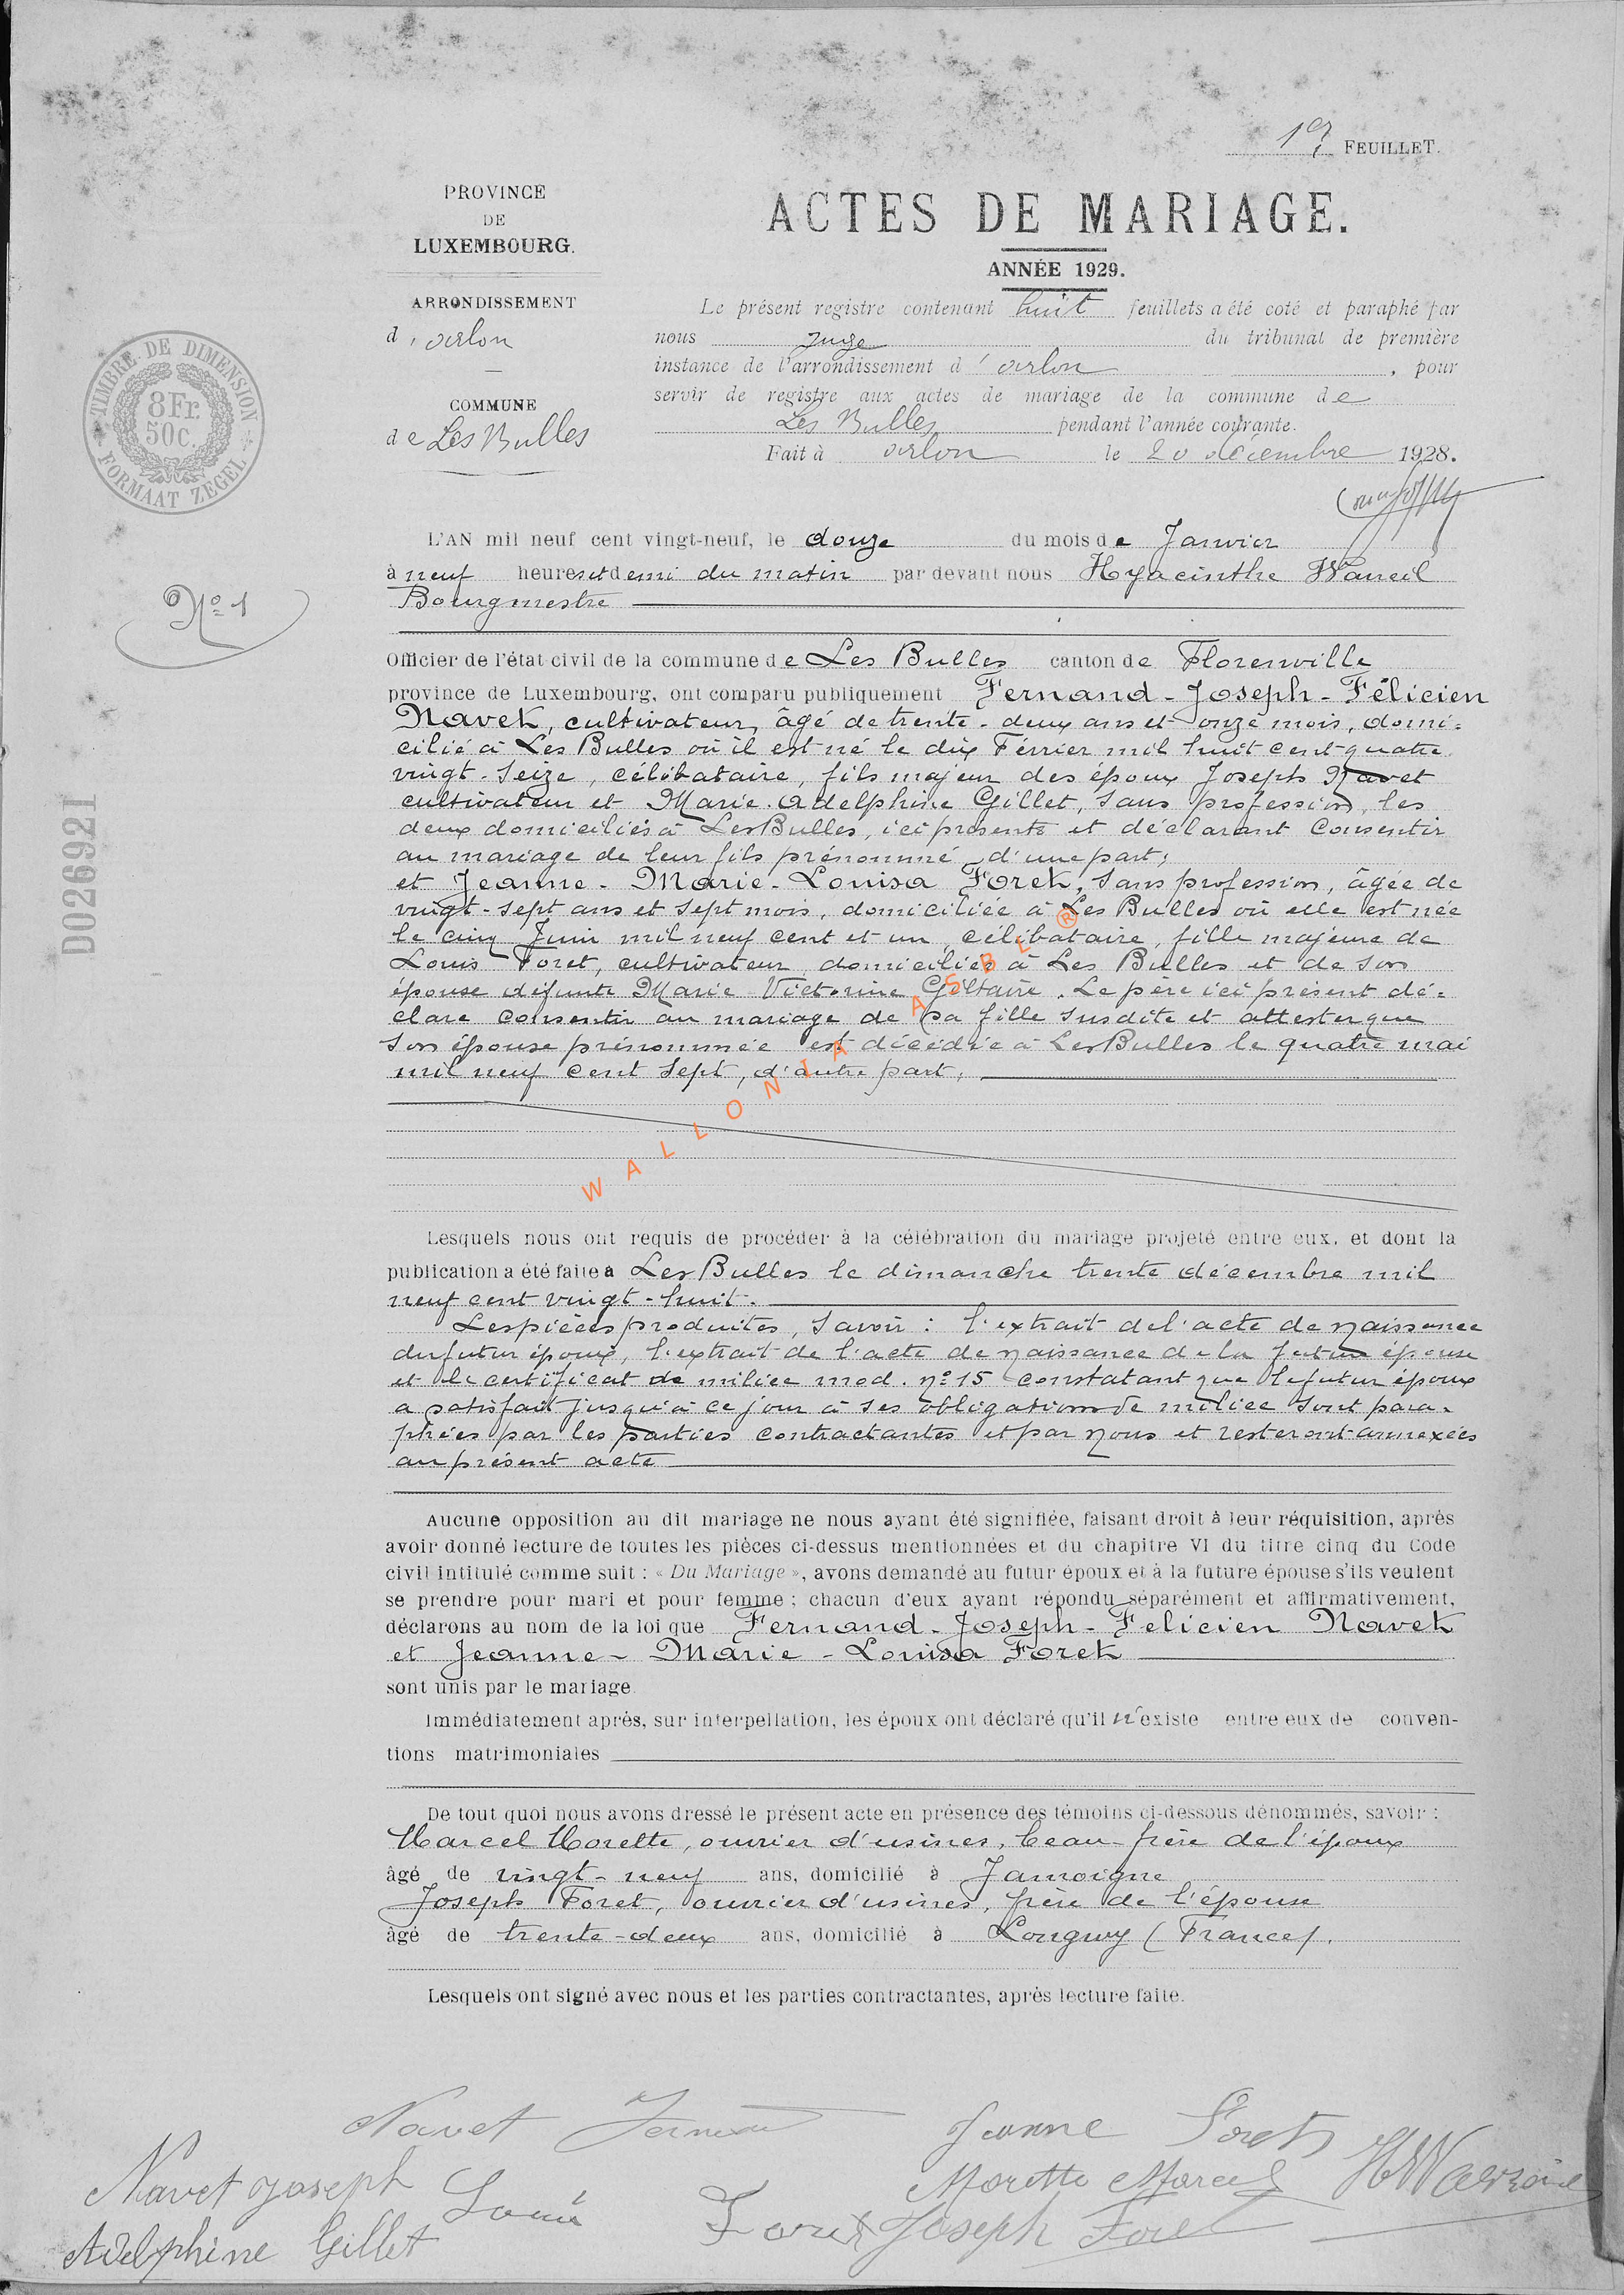 1er FEUILLET.
PROVINCE
DE
LUXEMBOURG.
ARRONDISSEMENT
d'Arlon
COMMUNE
de Les Bulles
TIMBRE DE DIMENSION
8Fr.
50c.
FORMAAT ZEGEL
D026921
ACTES DE MARIAGE.
ANNÉE 1929.
Le présent registre contenant huit feuillets a été coté et paraphé par
nous Juge du tribunal de première
instance de l'arrondissement d'Arlon, pour
servir de registre aux actes de mariage de la commune de
Les Bulles pendant l'année courante.
Fait à Arlon le 20 décembre 1928.
No 1
L'AN mil neuf cent vingt-neuf, le douze du mois de Janvier
à neuf heures et demi du matin par devant nous Hyacinthe
Bourgmestre
Officier de l'état civil de la commune de Les Bulles canton de Florenville
province de Luxembourg, ont comparu publiquement Fernand-Joseph-Félicien
Navet, cultivateur, âgé de trente-deux ans et onze mois, domi=
cilié à Les Bulles où il est né le dix Février mil huit cent quatre
vingt-seize, célibataire, fils majeur des époux Joseph Navet
cultivateur et Marie-Adelphine Gillet, sans profession, les
deux domiciliés à Les Bulles, ici présents et déclarant consentir
au mariage de leur fils prénommé, d'une part;
et Jeanne-Marie-Louisa Foret, sans profession, âgée de
vingt-sept ans et sept mois, domiciliée à Les Bulles où elle est née
le cinq Juin mil neuf cent et un, célibataire, fille majeure de
Louis Foret, cultivateur, domicilié à Les Bulles et de son
épouse défunte Marie Victorine. Le père ici présent dé=
clare consentir au mariage de sa fille susdite et attester que
son épouse prénommée est décédée à Les Bulles le quatre mai
mil neuf cent sept, d'autre part,
WALLONIA ASBL ®
Lesquels nous ont requis de procéder à la célébration du mariage projeté entre eux, et dont la
publication a été faite à Les Bulles le dimanche trente décembre mil
neuf cent vingt-huit.
Les pièces produites, savoir : l'extrait de l'acte de naissance
du futur époux, l'extrait de l'acte de naissance de la future épouse
et le certificat de milice mod. no 15 constatant que le futur époux
a satisfait jusqu'à ce jour à ses obligations de milice sont para-
phées par les parties contractantes et par nous et resteront annexées
au présent acte
Aucune opposition au dit mariage ne nous ayant été signifiée, faisant droit à leur réquisition, après
avoir donné lecture de toutes les pièces ci-dessus mentionnées et du chapitre VI du titre cinq du Code
civil intitulé comme suit : « Du Mariage », avons demandé au futur époux et à la future épouse s'ils veulent
se prendre pour mari et pour femme ; chacun d'eux ayant répondu séparément et affirmativement,
déclarons au nom de la loi que Fernand-Joseph-Felicien Navet
et Jeanne-Marie-Louisa Foret
sont unis par le mariage
Immédiatement après, sur interpellation, les époux ont déclaré qu'il n'existe entre eux de conven-
tions matrimoniales
De tout quoi nous avons dressé le présent acte en présence des témoins ci-dessous dénommés, savoir :
Marcel Morette, ouvrier d'usines, beau-frère de l'époux
âgé de vingt-neuf ans, domicilié à Jamoigne
Joseph Foret, ouvrier d'usines, frère de l'épouse
âgé de trente-deux ans, domicilié à Longwy (France).
Lesquels ont signé avec nous et les parties contractantes, après lecture faite.
Navet Fernand
Jeanne Foret
Navet Joseph
Louis Foret
Morette Marcel
Adelphine Gillet
Joseph Foret